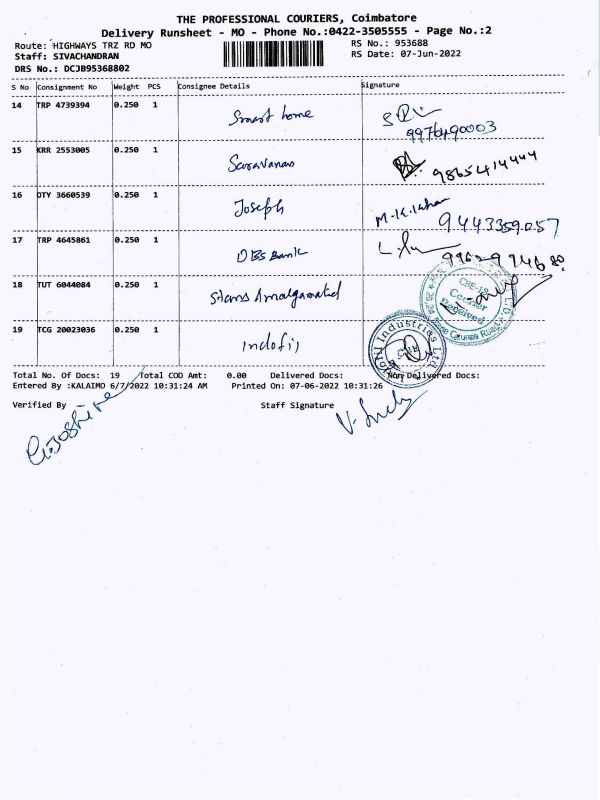 THE PROFESSIONAL COURIERS, Coimbatore
Delivery Runsheet - MO - Phone No.:0422-3505555 - Page No.:2
Route: HIGHWAYS TRZ RD MO RS No.: 953688
Staff: SIVACHANDRAN RS Date: 07-Jun-2022
DRS No.: DCJB95368802
S No Consignment No Weight PCS Consignee Details Signature
14 TRP 4739394 0.250 1 Smart home
9976490003
15 KRR 2553005 0.250 1 Saravanan 9865414444
16 OTY 3660539 0.250 1 Joseph 9443359057
17 TRP 4645861 0.250 1 DBS Bank
18 TUT 6044084 0.250 1 Stans Amalgamated
Courier
Received
Race Course Road
19 TCG 20023036 0.250 1 Indofil
Industries Ltd
Total No. Of Docs: 19 Total COD Amt: 0.00 Delivered Docs: Non Delivered Docs:
Entered By :KALAIMO 6/7/2022 10:31:24 AM Printed On: 07-06-2022 10:31:26
Verified By Staff Signature